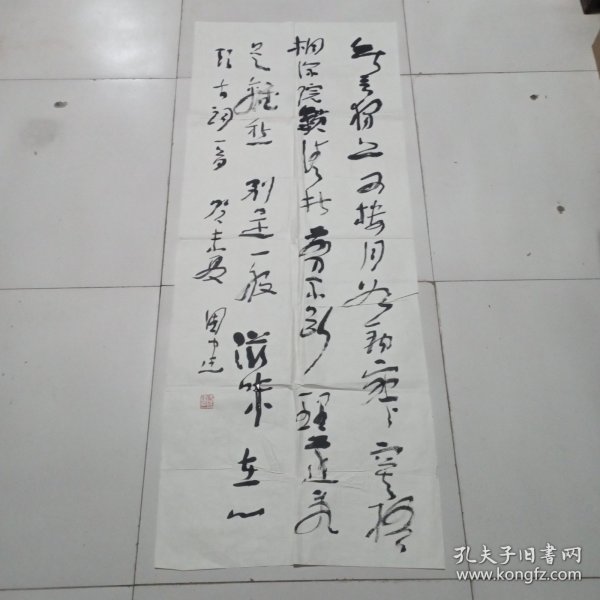 無言獨上西楼月如鈎寂寞梧
桐深院鎖清秋剪不断理還乱
是離愁别是一般滋味在心
頭古詞一首 癸未夏 周中
孔夫子旧书网
www.kongfz.com